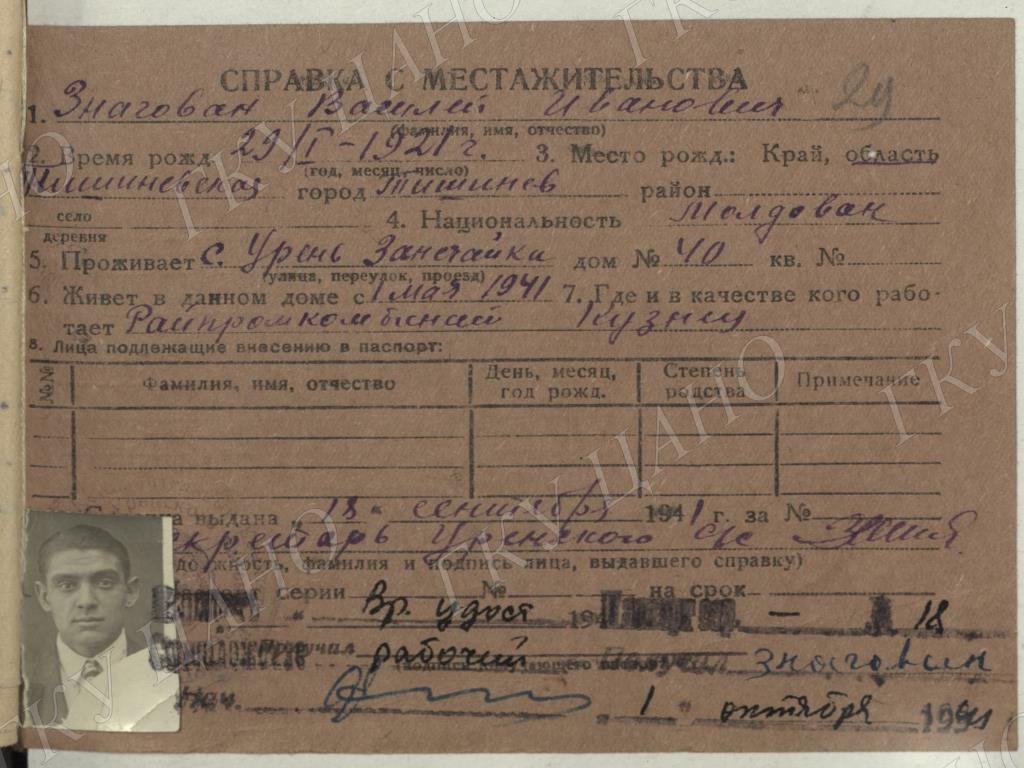 СПРАВКА С МЕСТАЖИТЕЛЬСТВА
29
1. Знагован Василий Иванович
(фамилия, имя, отчество)
2. Время рожд. 29/I-1921г. 3. Место рожд.: Край, область
(год, месяц, число)
Кишиневская город Кишинев район
село
деревня
4. Национальность Молдован
5. Проживает с. Урень Занетайка дом № 40 кв. №
(улица, переулок, проезд)
6. Живет в данном доме с 1 мая 1941 7. Где и в качестве кого рабо-
тает Райпромкомбинат Кузниц
8. Лица подлежащие внесению в паспорт:
№№ Фамилия, имя, отчество День, месяц, год рожд. Степень родства Примечание
выдана „18" сентября 1941 г. за №
екретарь Уренского с/с
должность, фамилия и подпись лица, выдавшего справку)
серии № на срок
Вр. удост 194 — 18
рабочий Получал Знагован
нач. „1" октября 1941
ГКУ ЦАНО